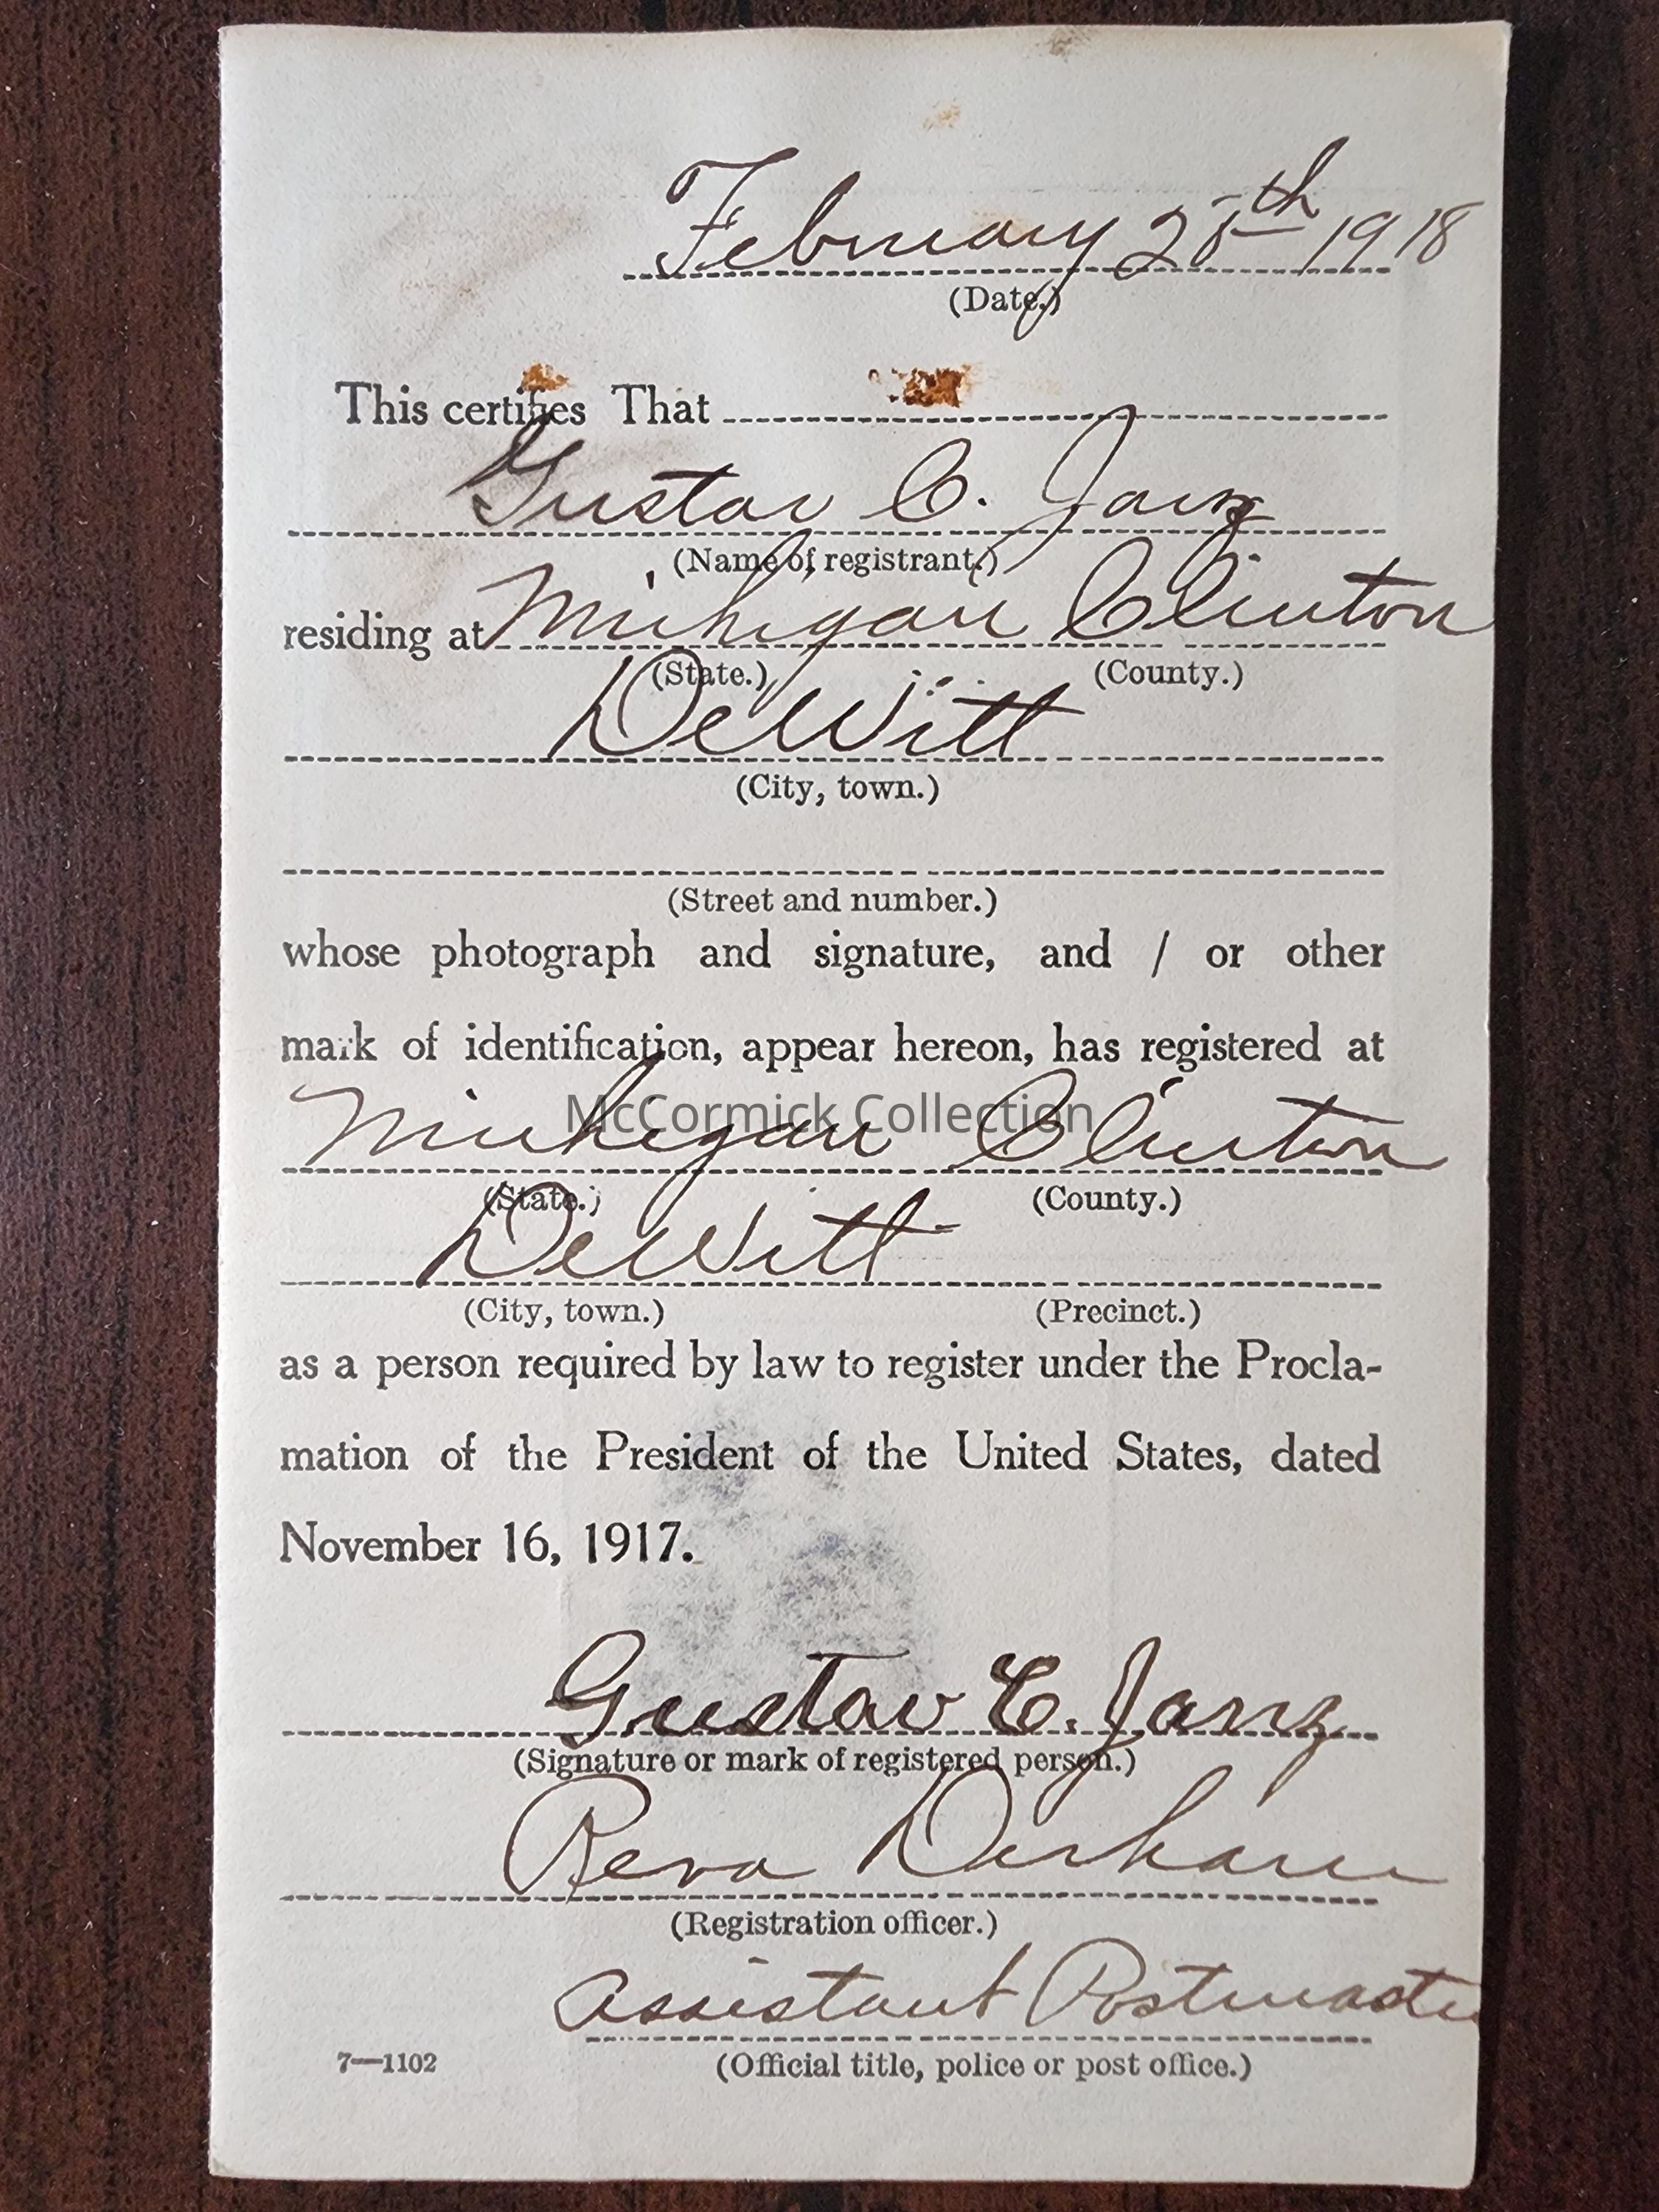 February 25th 1918
(Date.)
This certifies That
Gustav C. Janz
(Name of registrant.)
residing at Michigan Clinton
(State.) (County.)
DeWitt
(City, town.)
(Street and number.)
whose photograph and signature, and / or other
mark of identification, appear hereon, has registered at
McCormick Collection
Michigan Clinton
(State.) (County.)
DeWitt
(City, town.) (Precinct.)
as a person required by law to register under the Procla-
mation of the President of the United States, dated
November 16, 1917.
Gustav C. Janz
(Signature or mark of registered person.)
Reva Durham
(Registration officer.)
Assistant Postmaster
7—1102 (Official title, police or post office.)